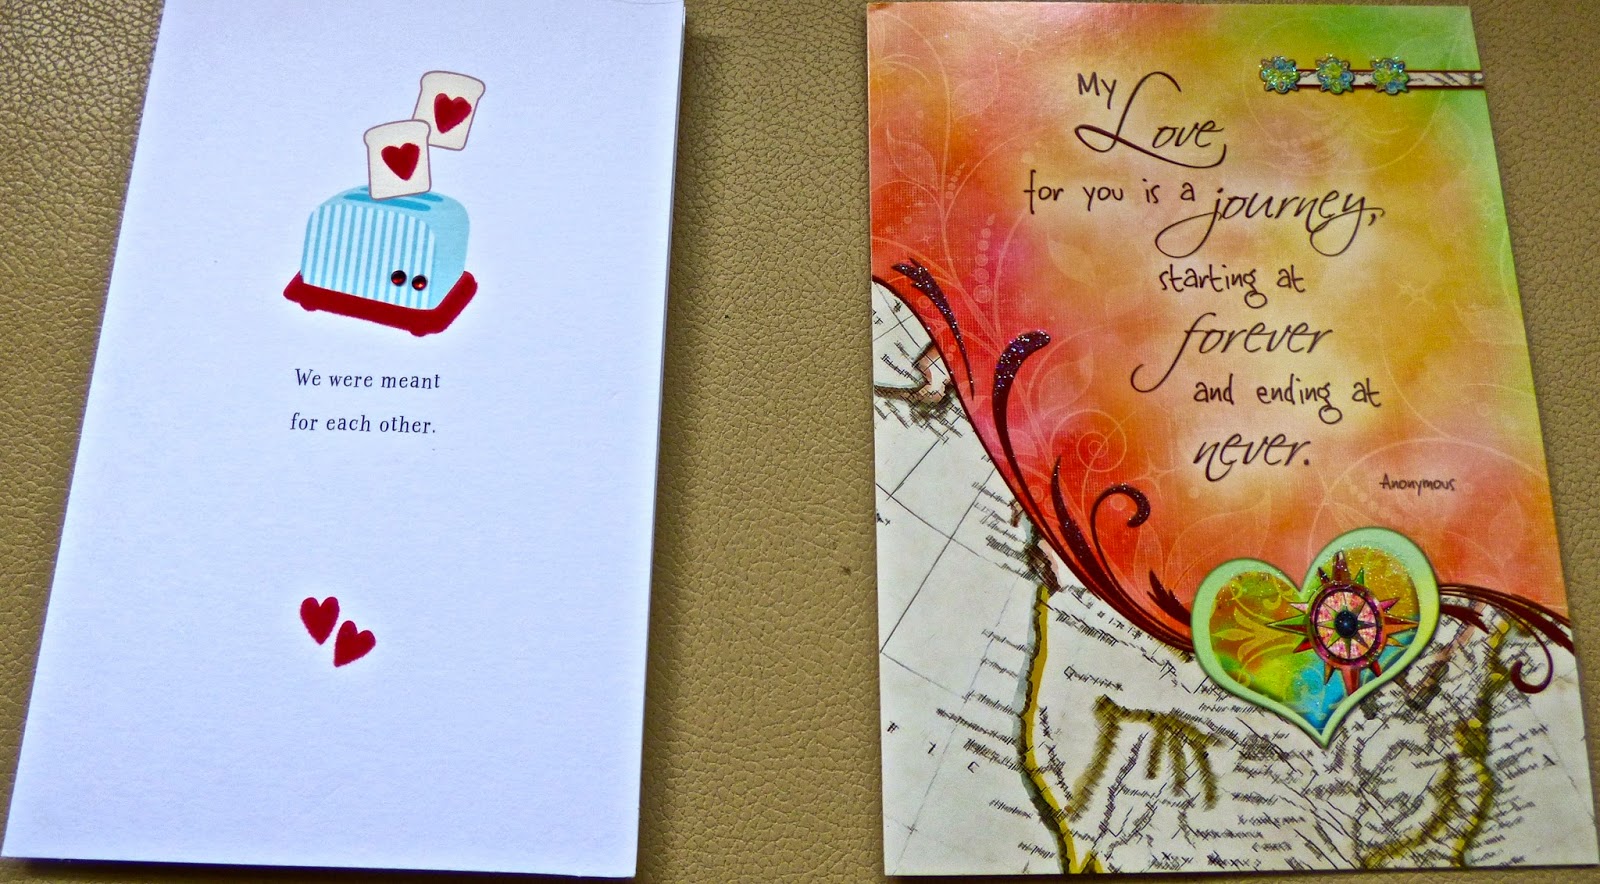 We were meant
for each other.
My
Love
for you is a journey,
starting at
forever
and ending at
never.
Anonymous